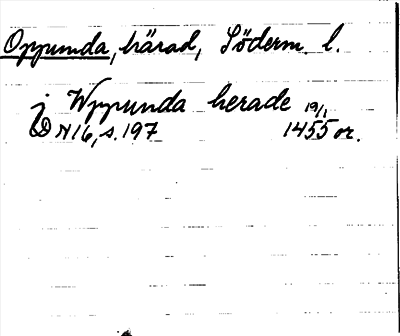 Oppunda, härad, Söderm. l.
j Wppunda herade 19/1
D N16, s. 197 1455 or.